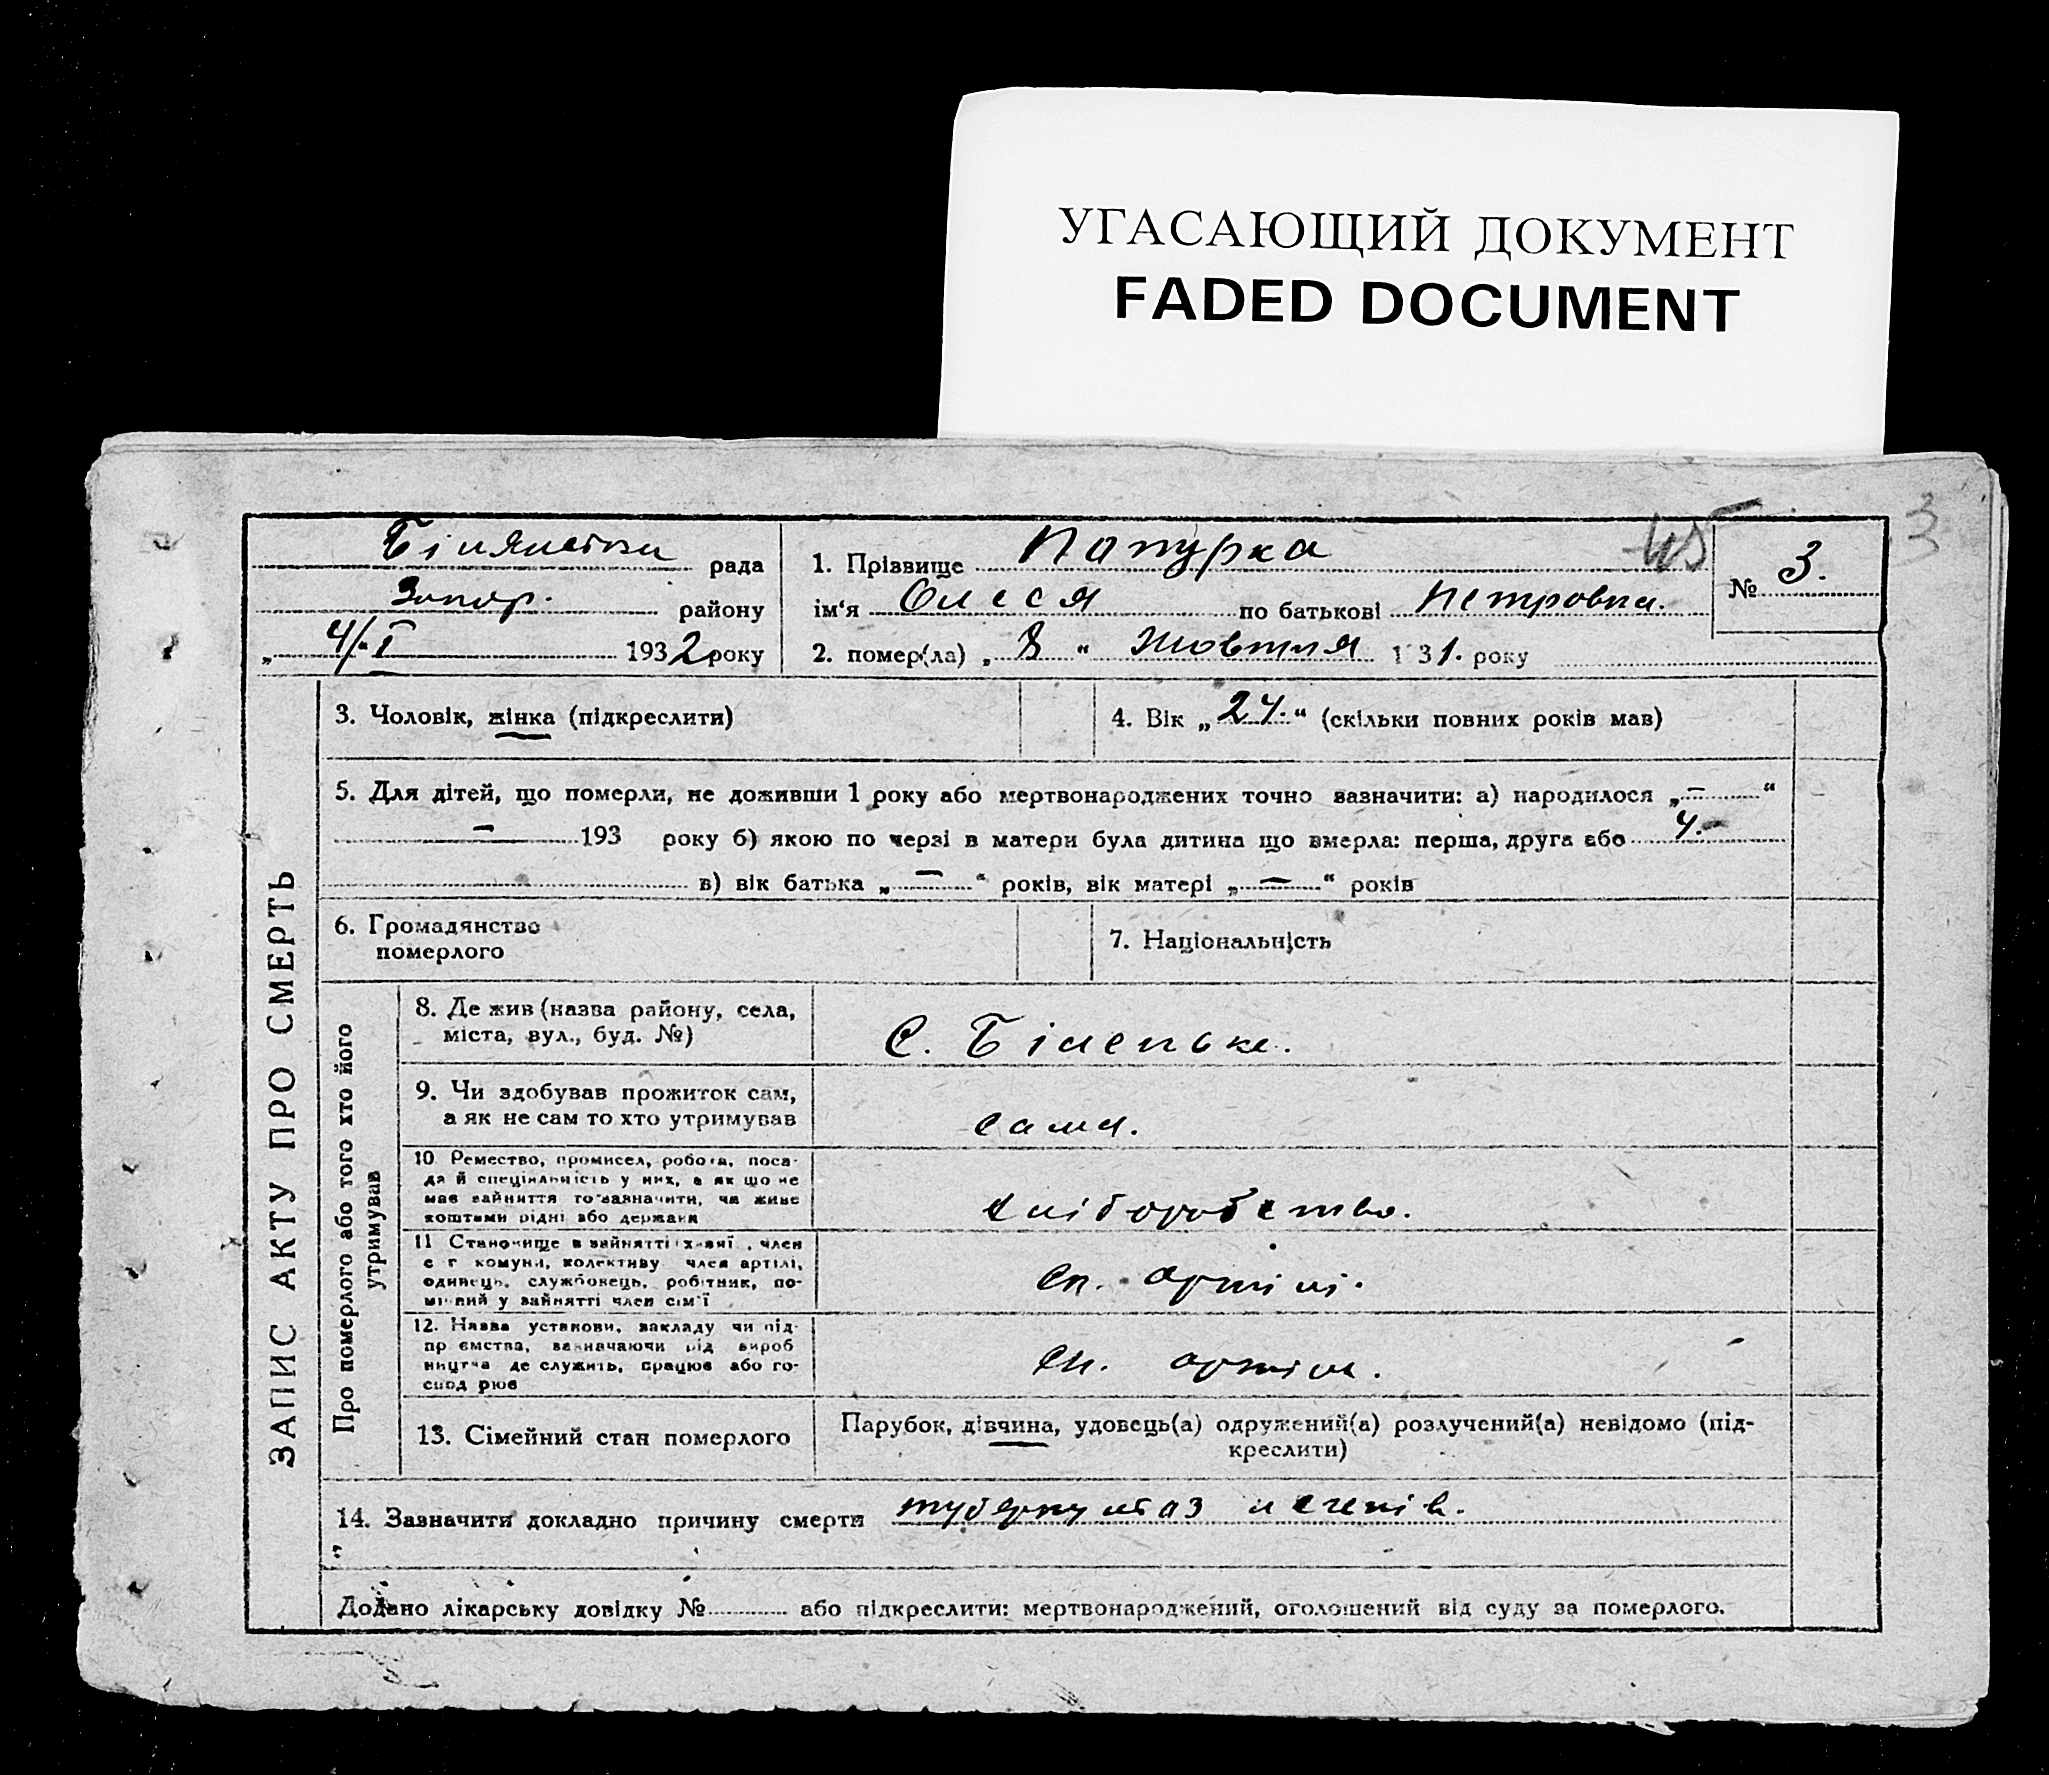 УГАСАЮЩИЙ ДОКУМЕНТ
FADED DOCUMENT
3
рада
Запор. району
„ 4/I 1932 року
1. Прізвище Папурка 45
ім‘я Олеся по батькові Петровна.
2. помер(ла) „ 8 “ Жовтня 1931. року
№ 3.
ЗАПИС АКТУ ПРО СМЕРТЬ
3. Чоловік, жінка (підкреслити)
4. Вік „ 24. “ (скільки повних років мав)
5. Для дітей, що померли, не доживши 1 року або мертвонароджених точно зазначити: а) народилося „ – “
– 193 року б) якою по черзі в матери була дитина що вмерла: перша, друга або 4. –
в) вік батька „ – “ років, вік матері „ – “ років
6. Громадянство
померлого
7. Національність
Про померлого або того хто його
утримував
8. Де жив (назва району, села,
міста, вул., буд. №)
С. Біленьке.
9. Чи здобував прожиток сам,
а як не сам то хто утримував
сама.
10 Ремество, промисел, робота, поса-
да й спеціяльність у них, а як що не
має зайняття то зазначити, чи живе
коштами рідні або держави
хліборобство.
11 Становище в зайнятті: хазяї, член
с г комуни, колективу член артілі,
одинець, службовець, робітник, по-
мічний у зайнятті член сім'ї
сп. артілі.
12. Назва установи, закладу чи під-
приємства, зазначаючи рід вироб
ництва де служить, працює або го-
спод рює
сп. артіль.
13. Сімейний стан померлого
Парубок, дівчина, удовець(а) одружений(а) розлучений(а) невідомо (під-
креслити)
14. Зазначити докладно причину смерти туберкульоз легенів.
Додано лікарську довідку № або підкреслити: мертвонароджений, оголошений від суду за померлого.